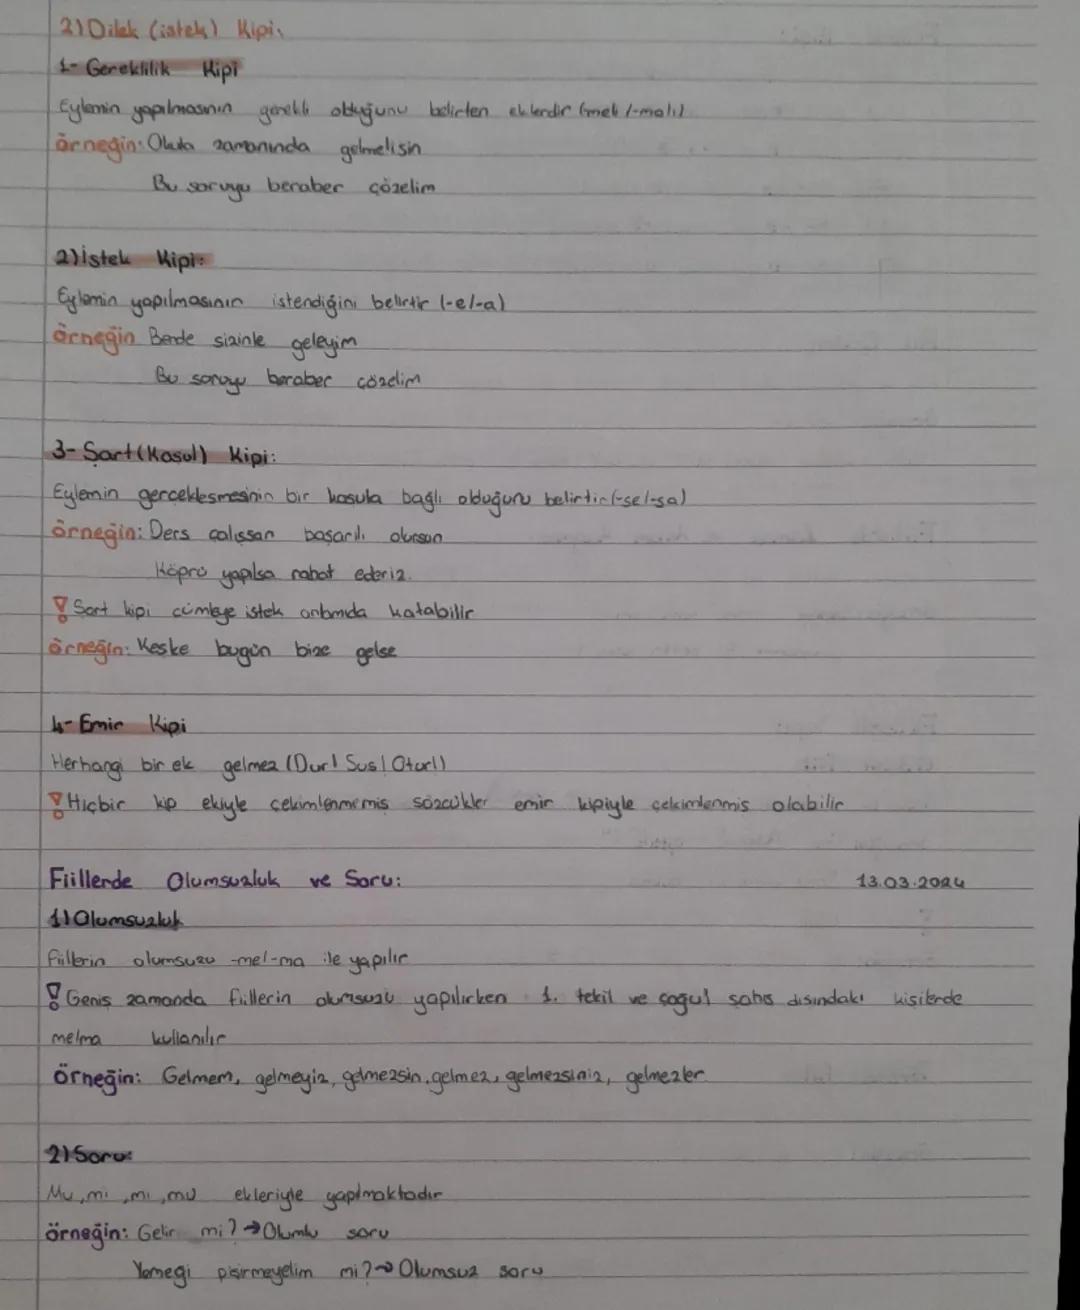 2) Dilek (istek) Kipi:
1- Gereklilik Kipi
Eylemin yapılmasının gerekli olduğunu belirten eklerdir (-meli/-malı)
örneğin: Okula zamanında gelmelisin
Bu soruyu beraber çözelim
2) İstek Kipi:
Eylemin yapılmasının istendiğini belirtir (-e/-a)
örneğin Bende sizinle geleyim
Bu soruyu beraber çözelim
3- Şart (Koşul) Kipi:
Eylemin gerçekleşmesinin bir koşula bağlı olduğunu belirtir (-se/-sa)
örneğin: Ders çalışsan başarılı olursun
Köprü yapılsa rahat ederiz.
! Şart kipi cümleye istek anlamıda katabilir
örneğin: Keske bugün bize gelse
4- Emir Kipi
Herhangi bir ek gelmez (Dur! Sus! Otur!)
! Hiçbir kip ekiyle çekimlenmemiş sözcükler emir kipiyle çekimlenmiş olabilir
Fiillerde Olumsuzluk ve Soru: 13.03.2024
1) Olumsuzluk
fiillerin olumsuzu -me/-ma ile yapılır
! Geniş zamanda fiillerin olumsuzu yapılırken 1. tekil ve çoğul şahıs dışındaki kişilerde
me/ma kullanılır
örneğin: Gelmem, gelmeyiz, gelmezsin, gelmez, gelmezsiniz, gelmezler
2) Soru:
Mu, mi, mı, mü ekleriyle yapılmaktadır
örneğin: Gelir mi? → Olumlu soru
Yemegi pişirmeyelim mi? → Olumsuz soru